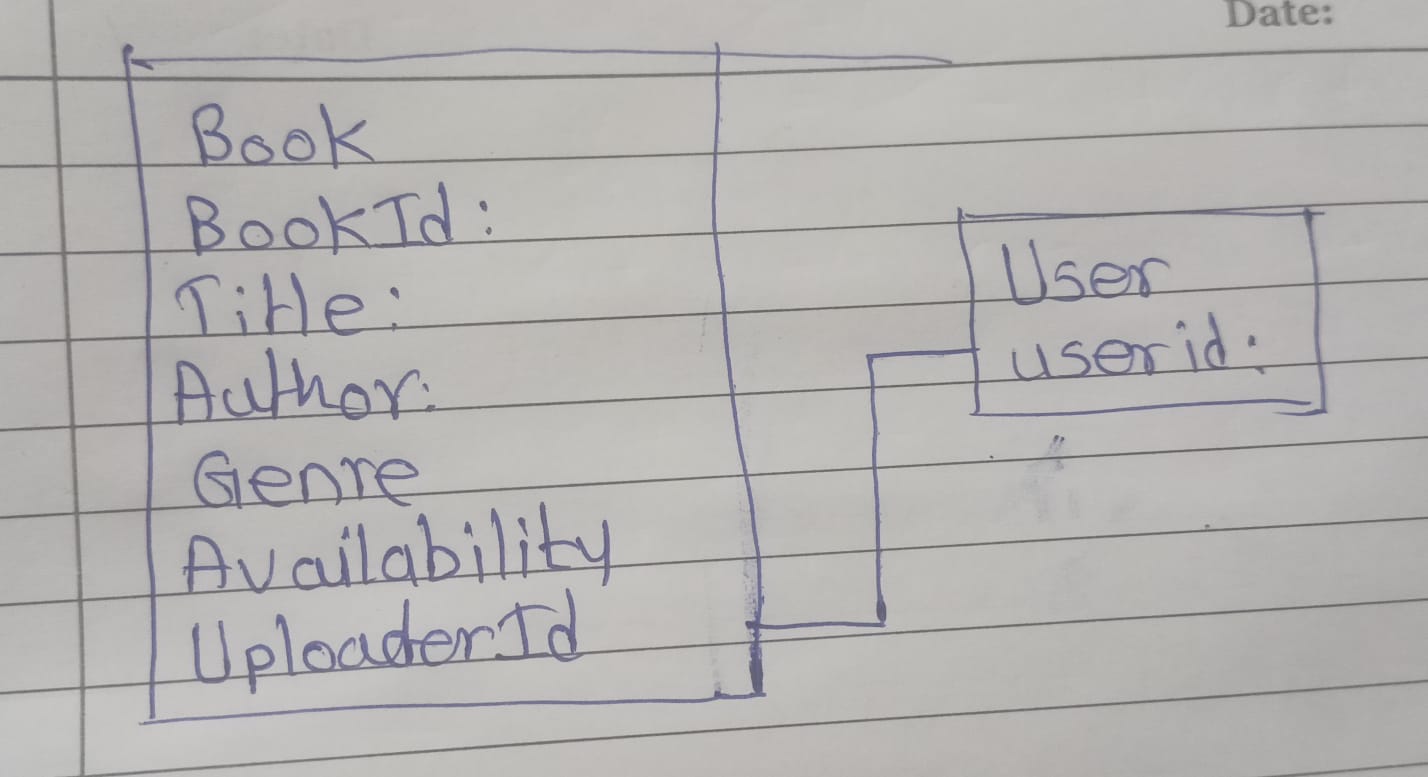 Date:
Book
BookId:
Title:
Author:
Genre
Availability
UploaderId
User
userid: